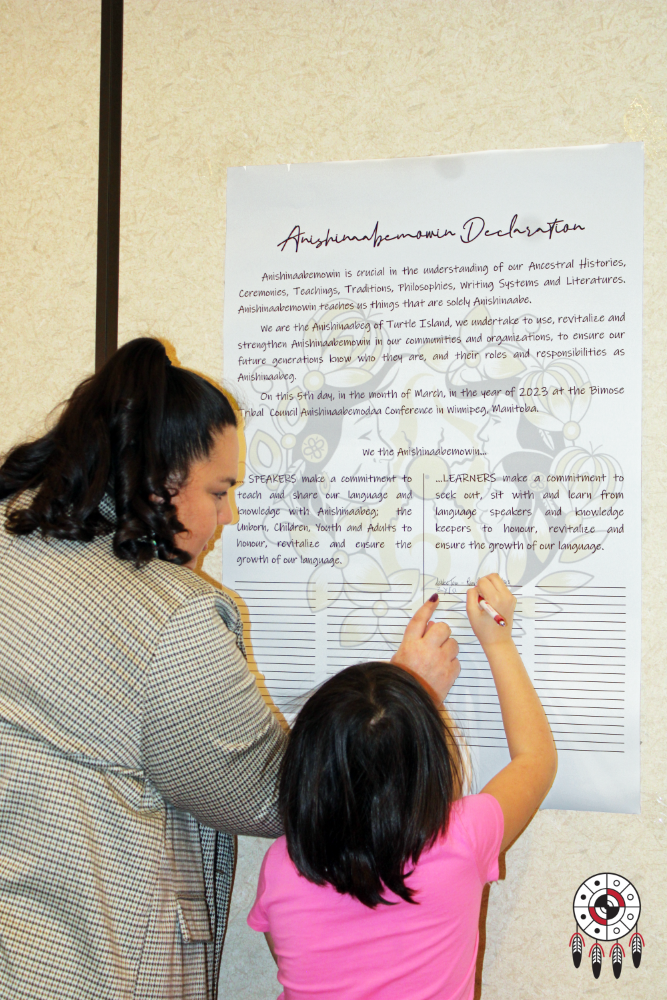 Anishinaabemowin Declaration
Anishinaabemowin is crucial in the understanding of our Ancestral Histories,
Ceremonies, Teachings, Traditions, Philosophies, Writing Systems and Literatures.
Anishinaabemowin teaches us things that are solely Anishinaabe.
We are the Anishinaabeg of Turtle Island, we undertake to use, revitalize and
strengthen Anishinaabemowin in our communities and organizations, to ensure our
future generations know who they are, and their roles and responsibilities as
Anishinaabeg.
On this 5th day, in the month of March, in the year of 2023 at the Bimose
Tribal Council Anishinaabemodaa Conference in Winnipeg, Manitoba.
We the Anishinaabemowin...
... SPEAKERS make a commitment to
teach and share our language and
knowledge with Anishinaabeg; the
Unborn, Children, Youth and Adults to
honour, revitalize and ensure the
growth of our language.
...LEARNERS make a commitment to
seek out, sit with and learn from
language speakers and knowledge
keepers to honour, revitalize and
ensure the growth of our language.